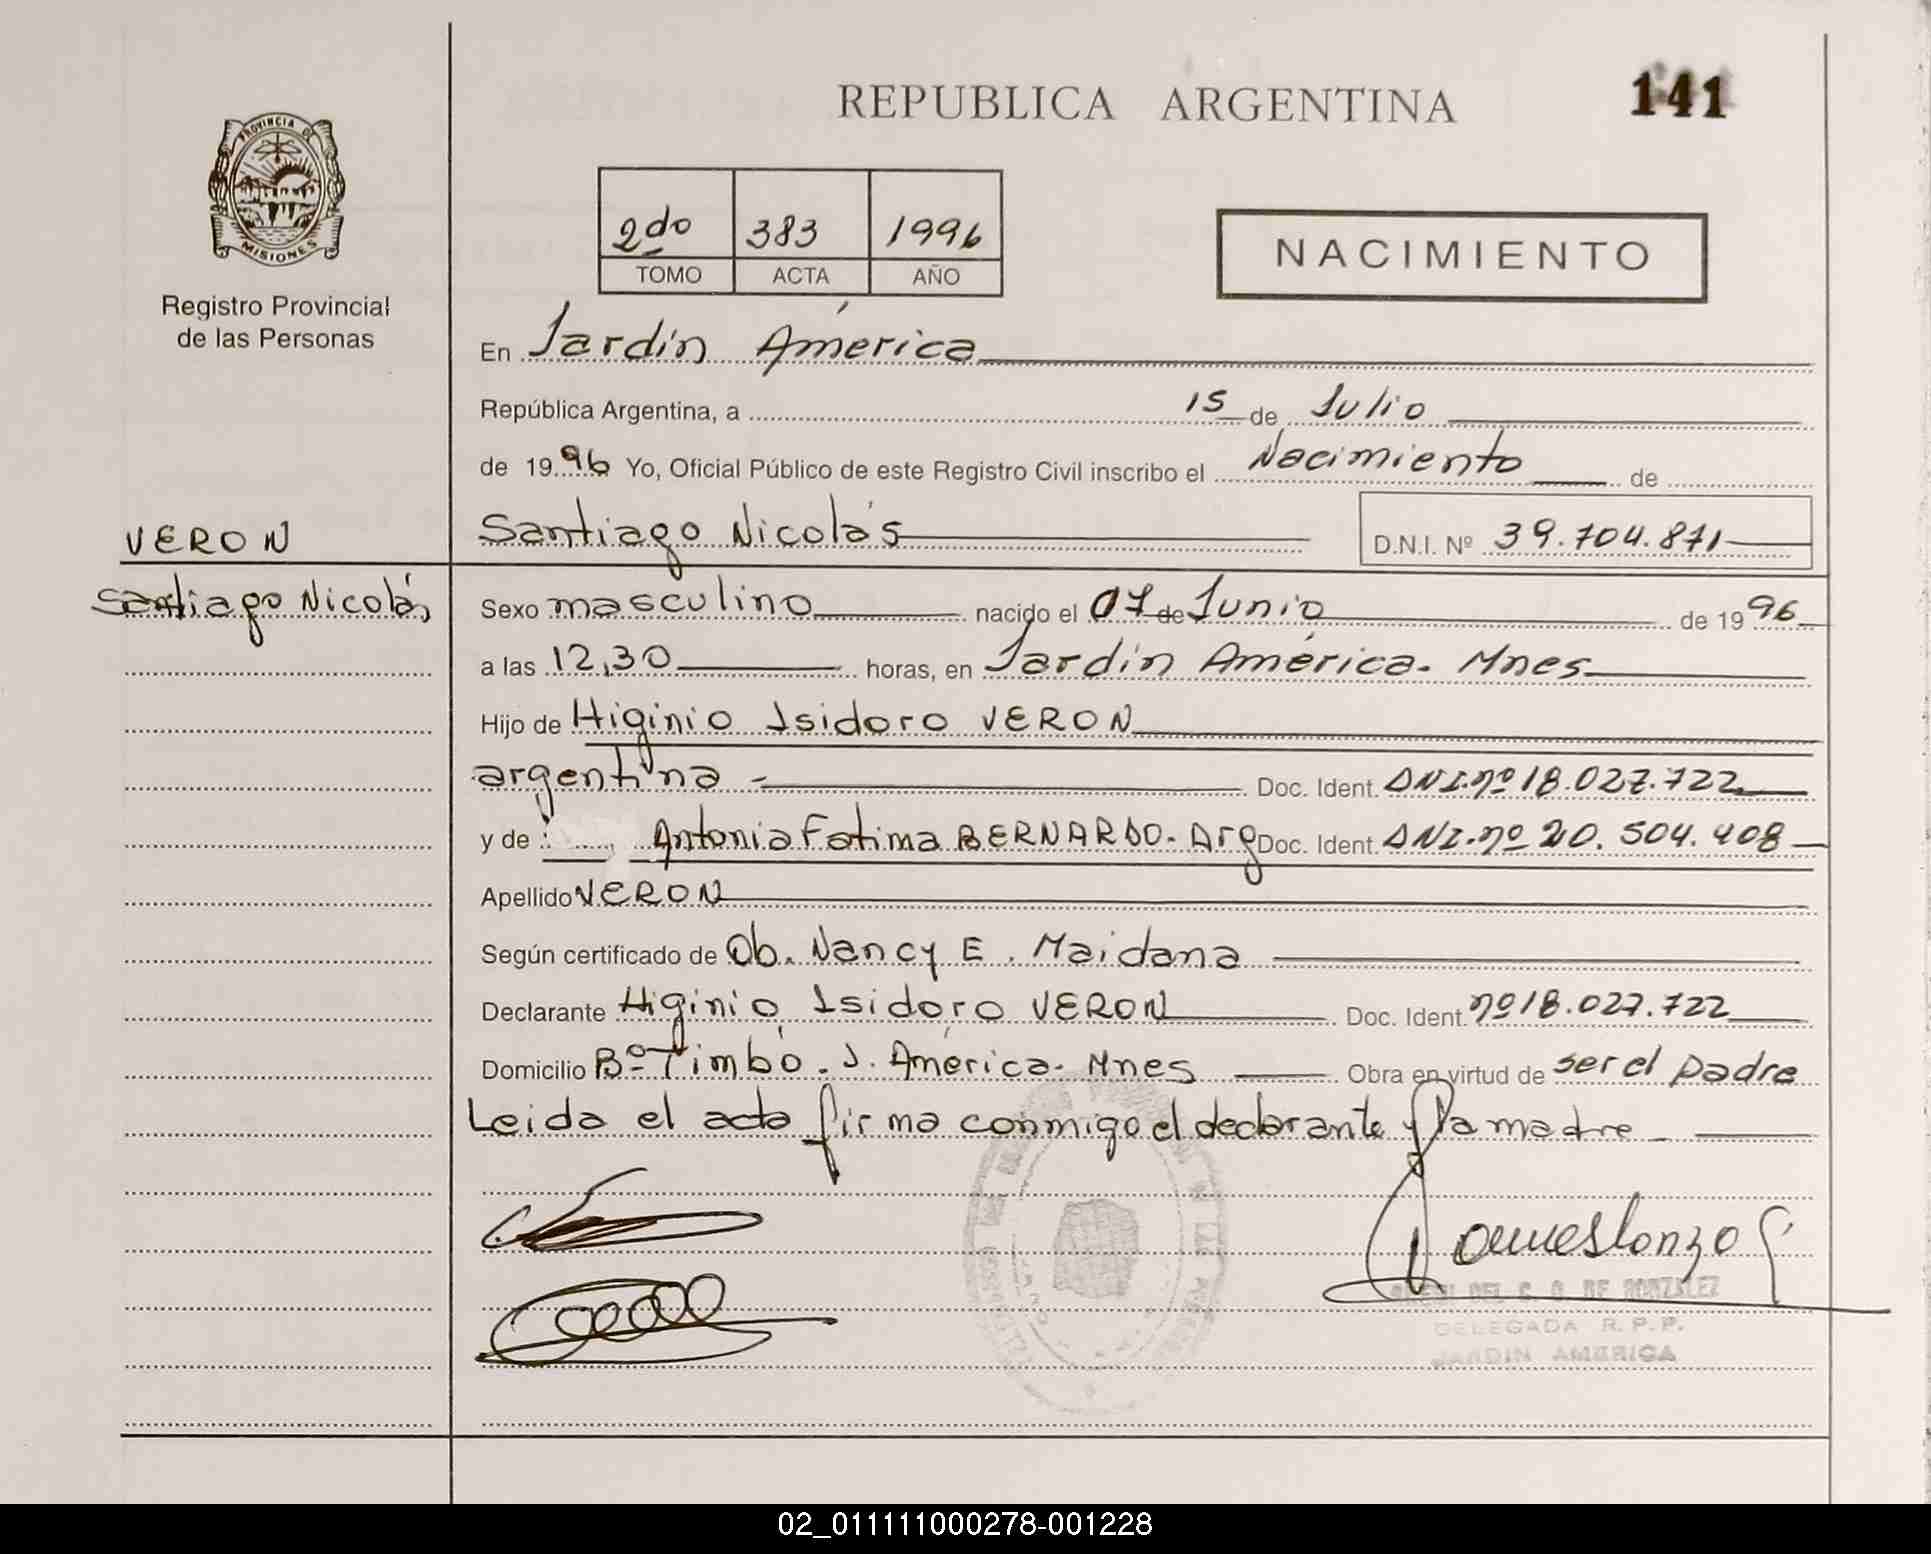 REPUBLICA ARGENTINA
141
PROVINCIA DE
MISIONES
Registro Provincial
de las Personas
2do 383 1996
TOMO ACTA AÑO
NACIMIENTO
En Jardín América
República Argentina, a 15 de Julio
de 1996 Yo, Oficial Público de este Registro Civil inscribo el Nacimiento de
VERON
Santiago Nicolás
Santiago Nicolás D.N.I. Nº 39.704.871
Sexo masculino nacido el 07 de Junio de 1996
a las 12,30 horas, en Jardín América. Mnes
Hijo de Higinio Isidoro VERON
argentina - Doc. Ident. DNI.nº 18.027.722
y de Antonia Fatima BERNARDO. Arg Doc. Ident. DNI.nº 20.504.408
Apellido VERON
Según certificado de Ob. Nancy E. Maidana
Declarante Higinio Isidoro VERON Doc. Ident. nº 18.027.722
Domicilio Bº Timbó. J. América. Mnes Obra en virtud de ser el padre
Leida el acta firma conmigo el declarante y la madre
DEL C. G. DE GONZALEZ
DELEGADA R.P.P.
JARDIN AMERICA
02_011111000278-001228